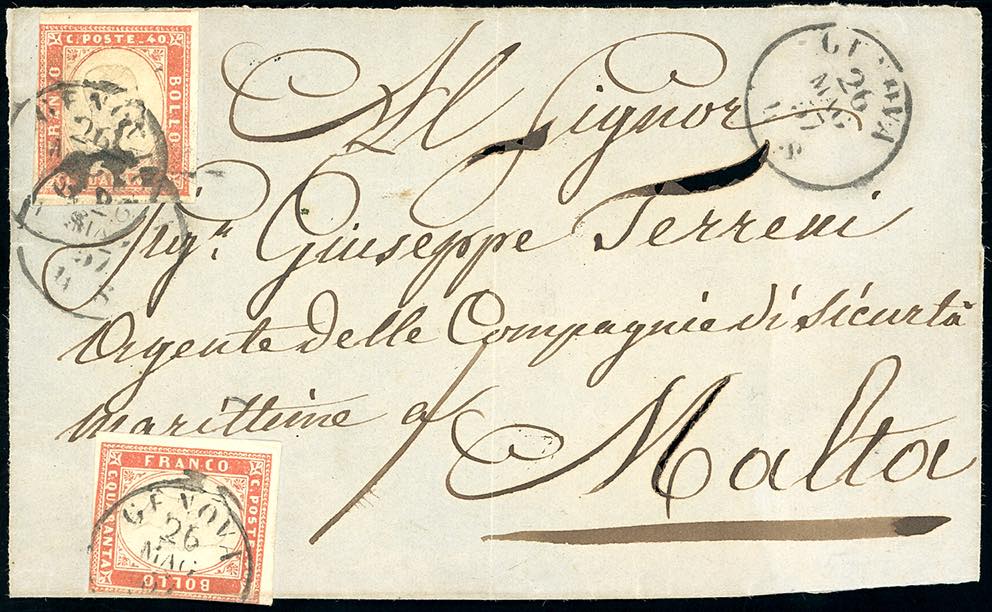 C. POSTE. 40
FRANCO
BOLLO
GENOVA
26
MAG
57
GENOVA
26
MAG
57
Al Signor
Sigr. Giuseppe Terreni
Agente delle Compagnie di Sicurtà
marittime a
Malta
FRANCO
C. POSTE
QUARANTA
BOLLO
GENOVA
26
MAG
57